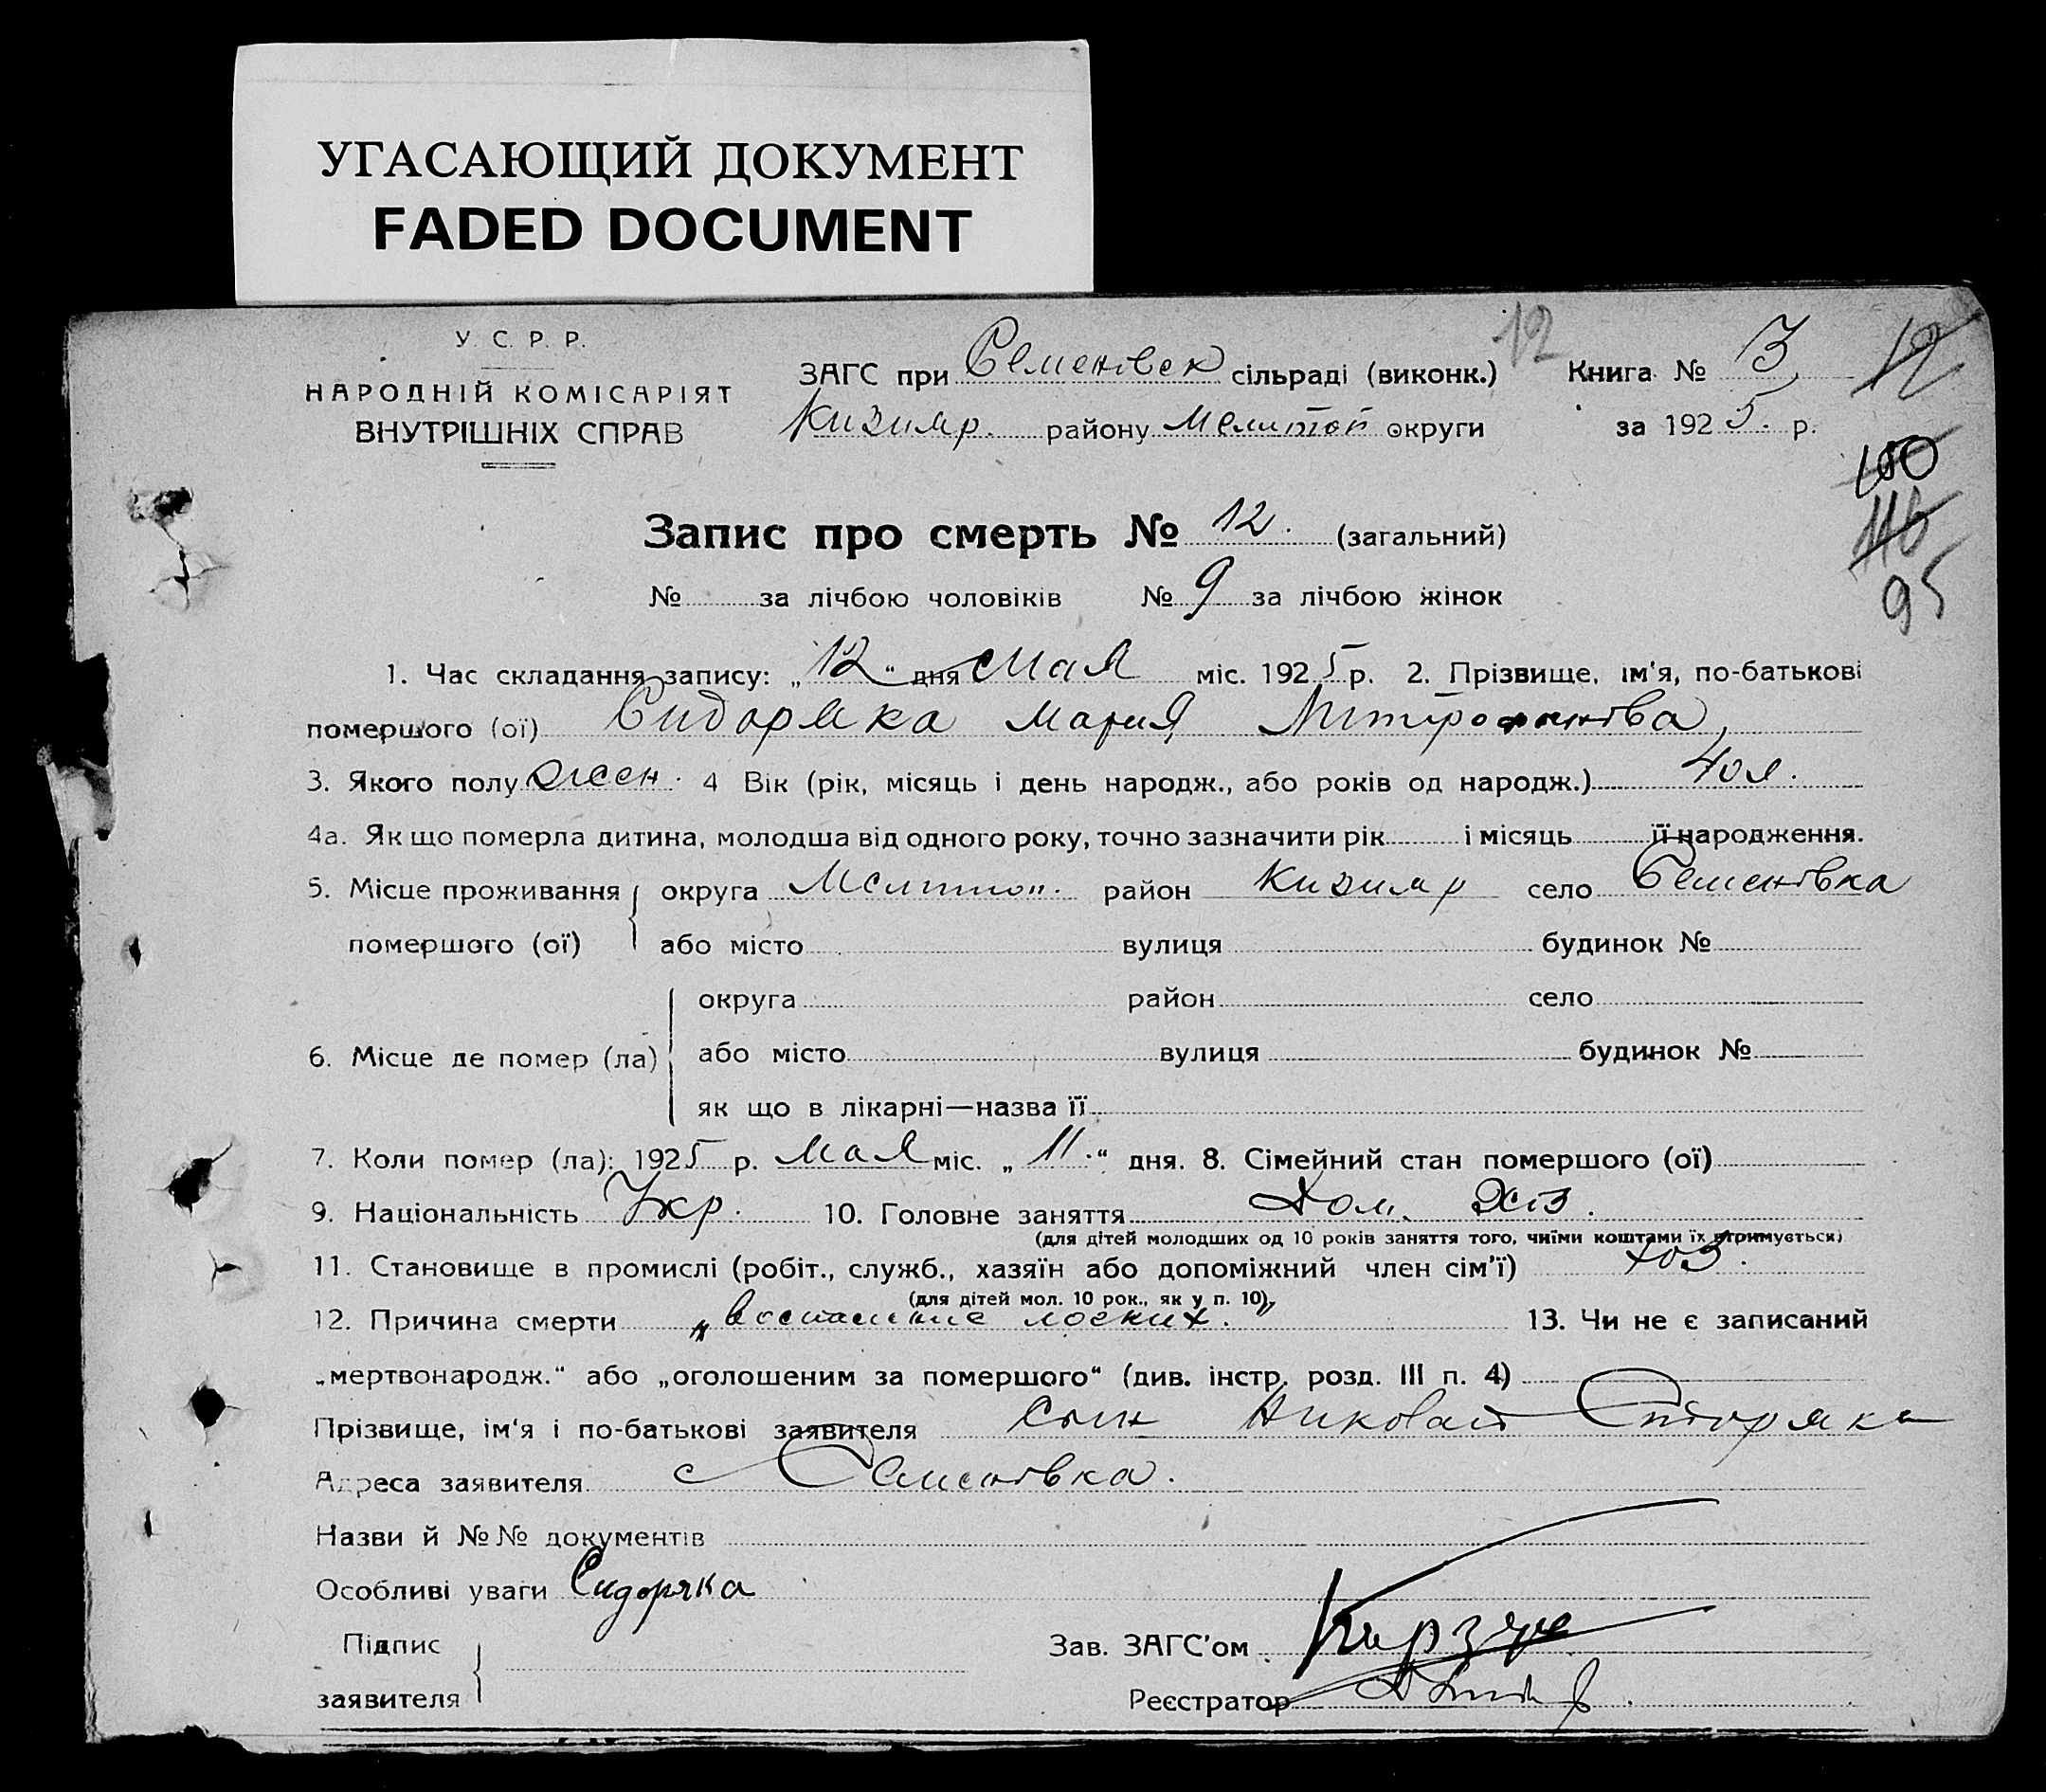 УГАСАЮЩИЙ ДОКУМЕНТ
FADED DOCUMENT
У. С. Р. Р.
НАРОДНІЙ КОМІСАРІЯТ
ВНУТРІШНІХ СПРАВ
12
ЗАГС при Семенівск сільраді (виконк.)
Кизияр. району Мелитоп округи
Книга № 3
за 1925. р.
12
100
116
95
Запис про смерть № 12. (загальний)
№ за лічбою чоловіків № 9 за лічбою жінок
1. Час складання запису: „12“ дня Мая міс. 1925 р. 2. Прізвище, ім'я, по-батькові
помершого (ої) Сидоряка Мария Митрофанівa
3. Якого полу жен. 4 Вік (рік, місяць і день народж., або років од народж.) 40 л.
4а. Як що померла дитина, молодша від одного року, точно зазначити рік і місяць її народження.
5. Місце проживання помершого (ої) округа Мелитоп. район Кизияр село Семенівка
або місто вулиця будинок №
6. Місце де помер (ла) округа район село
або місто вулиця будинок №
як що в лікарні—назва її
7. Коли помер (ла): 1925 р. Мая міс. „11.“ дня. 8. Сімейний стан помершого (ої)
9. Національність Укр. 10. Головне заняття Дом. Хоз.
(для дітей молодших од 10 років заняття того, чиїми коштами їх втримується)
11. Становище в промислі (робіт., служб., хазяїн або допоміжний член сім'ї) хоз.
(для дітей мол. 10 рок., як у п. 10)
12. Причина смерти „воспаление легких.“ 13. Чи не є записаний
„мертвонародж.“ або „оголошеним за помершого“ (див. інстр. розд. III п. 4)
Прізвище, ім'я і по-батькові заявителя сын Николай Сидоряка
Адреса заявителя с Семенівка.
Назви й №№ документів
Особливі уваги Сидоряка
Підпис заявителя
Зав. ЗАГС'ом
Реєстратор